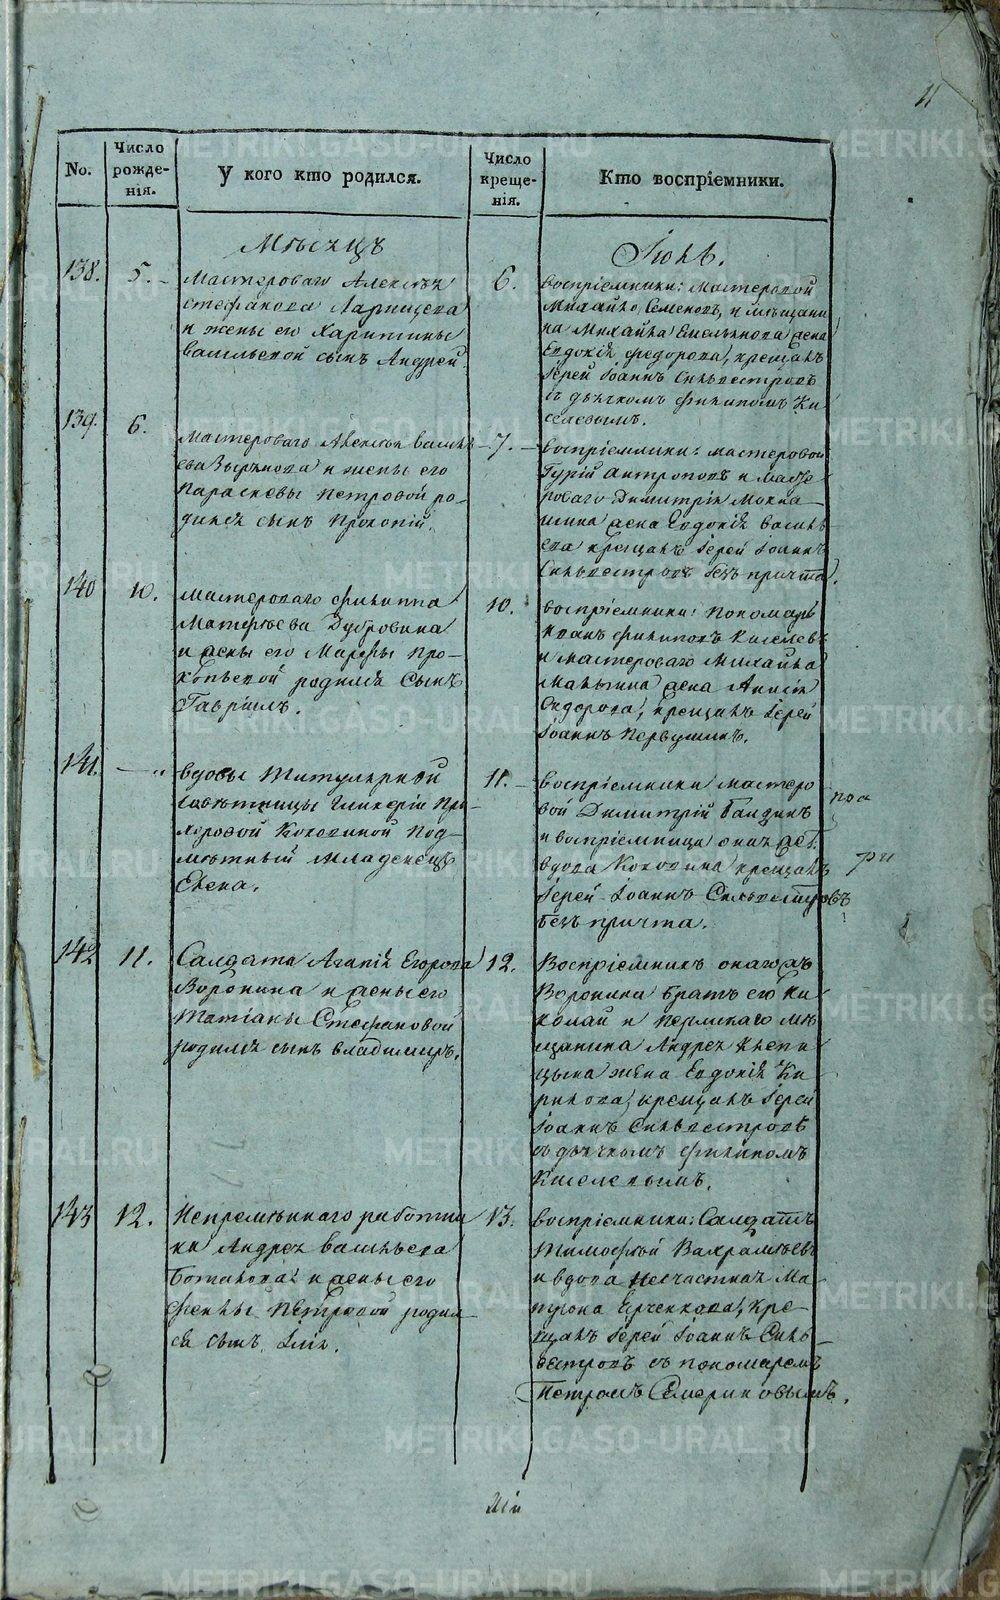 11
No.
Число рожде-нія.
У кого кто родился.
Число креще-нія.
Кто воспріемники.
Мѣсяцъ
Іюнь.
138.
5.
Мастероваго Алексѣя
Стефанова
и жены его Харитины
Васильевой сынъ Андрей.
6.
воспріемники: мастеровой
Михайло Семеновъ, и мѣщани
на Михайла Емельянова жена
Евдокія Федорова, крещалъ
Іерей Іоаннъ Сильвестровъ
съ дьячкомъ Филипомъ Ки
селевымъ.
139.
6.
Мастероваго Алексѣя Василь
ева Зырянова и жены его
Параскевы Петровой ро-
дился сынъ Прокопій.
7.
воспріемники: мастеровой
Гурій Антроповъ и масте
роваго Димитрія Мокла
жена Евдокія Василь
ева крещалъ Іерей Іоаннъ
Сильвестровъ безъ причта.
140
10.
Мастероваго Филиппа
Матфеева Дубровина
и жены его Марфы Про-
копьевой родился сынъ
Гавріилъ.
10.
воспріемники: пономарь
Иванъ Филиповъ Киселевъ
и мастероваго Михайла
Малыгина жена Анисія
Федорова, крещалъ Іерей
Іоаннъ Первушинъ.
141.
— "
вдовы Титулярной
совѣтницы Гликеріи При-
хоровой Коковиной под-
мѣтный младенецъ
Елена.
11.
воспріемники мастеро
вой Димитрій Баидинъ
и воспріемница онаяже
вдова Коковина крещалъ
Іерей Іоаннъ Сильвестровъ
безъ причта.
142
11.
Салдата Агапія Егорова
Воронина и жены его
Татіаны Стефановой
родился сынъ Владимиръ.
12.
Воспріемникъ онагожъ
Воронина братъ его Ни
колай и пермскаго мѣ
щанина Андрея Клепи
цына жена Евдокія Ки
рилова, крещалъ Іерей
Іоаннъ Сильвестровъ
съ дьячкомъ Филипомъ
Киселевымъ.
143
12.
Непремѣннаго работни
ка Андрея Васильева
Ботанова и жены его
Феклы Петровой родил-
ся сынъ Илія.
13.
воспріемники: Салдатъ
Тимофей Вахрамѣевъ
и вдова несчастная Ма
трона Ерченкова, кре-
щалъ Іерей Іоаннъ Силь-
вестровъ съ пономаремъ
Петромъ Смериковымъ.
METRIKI.GASO-URAL.RU